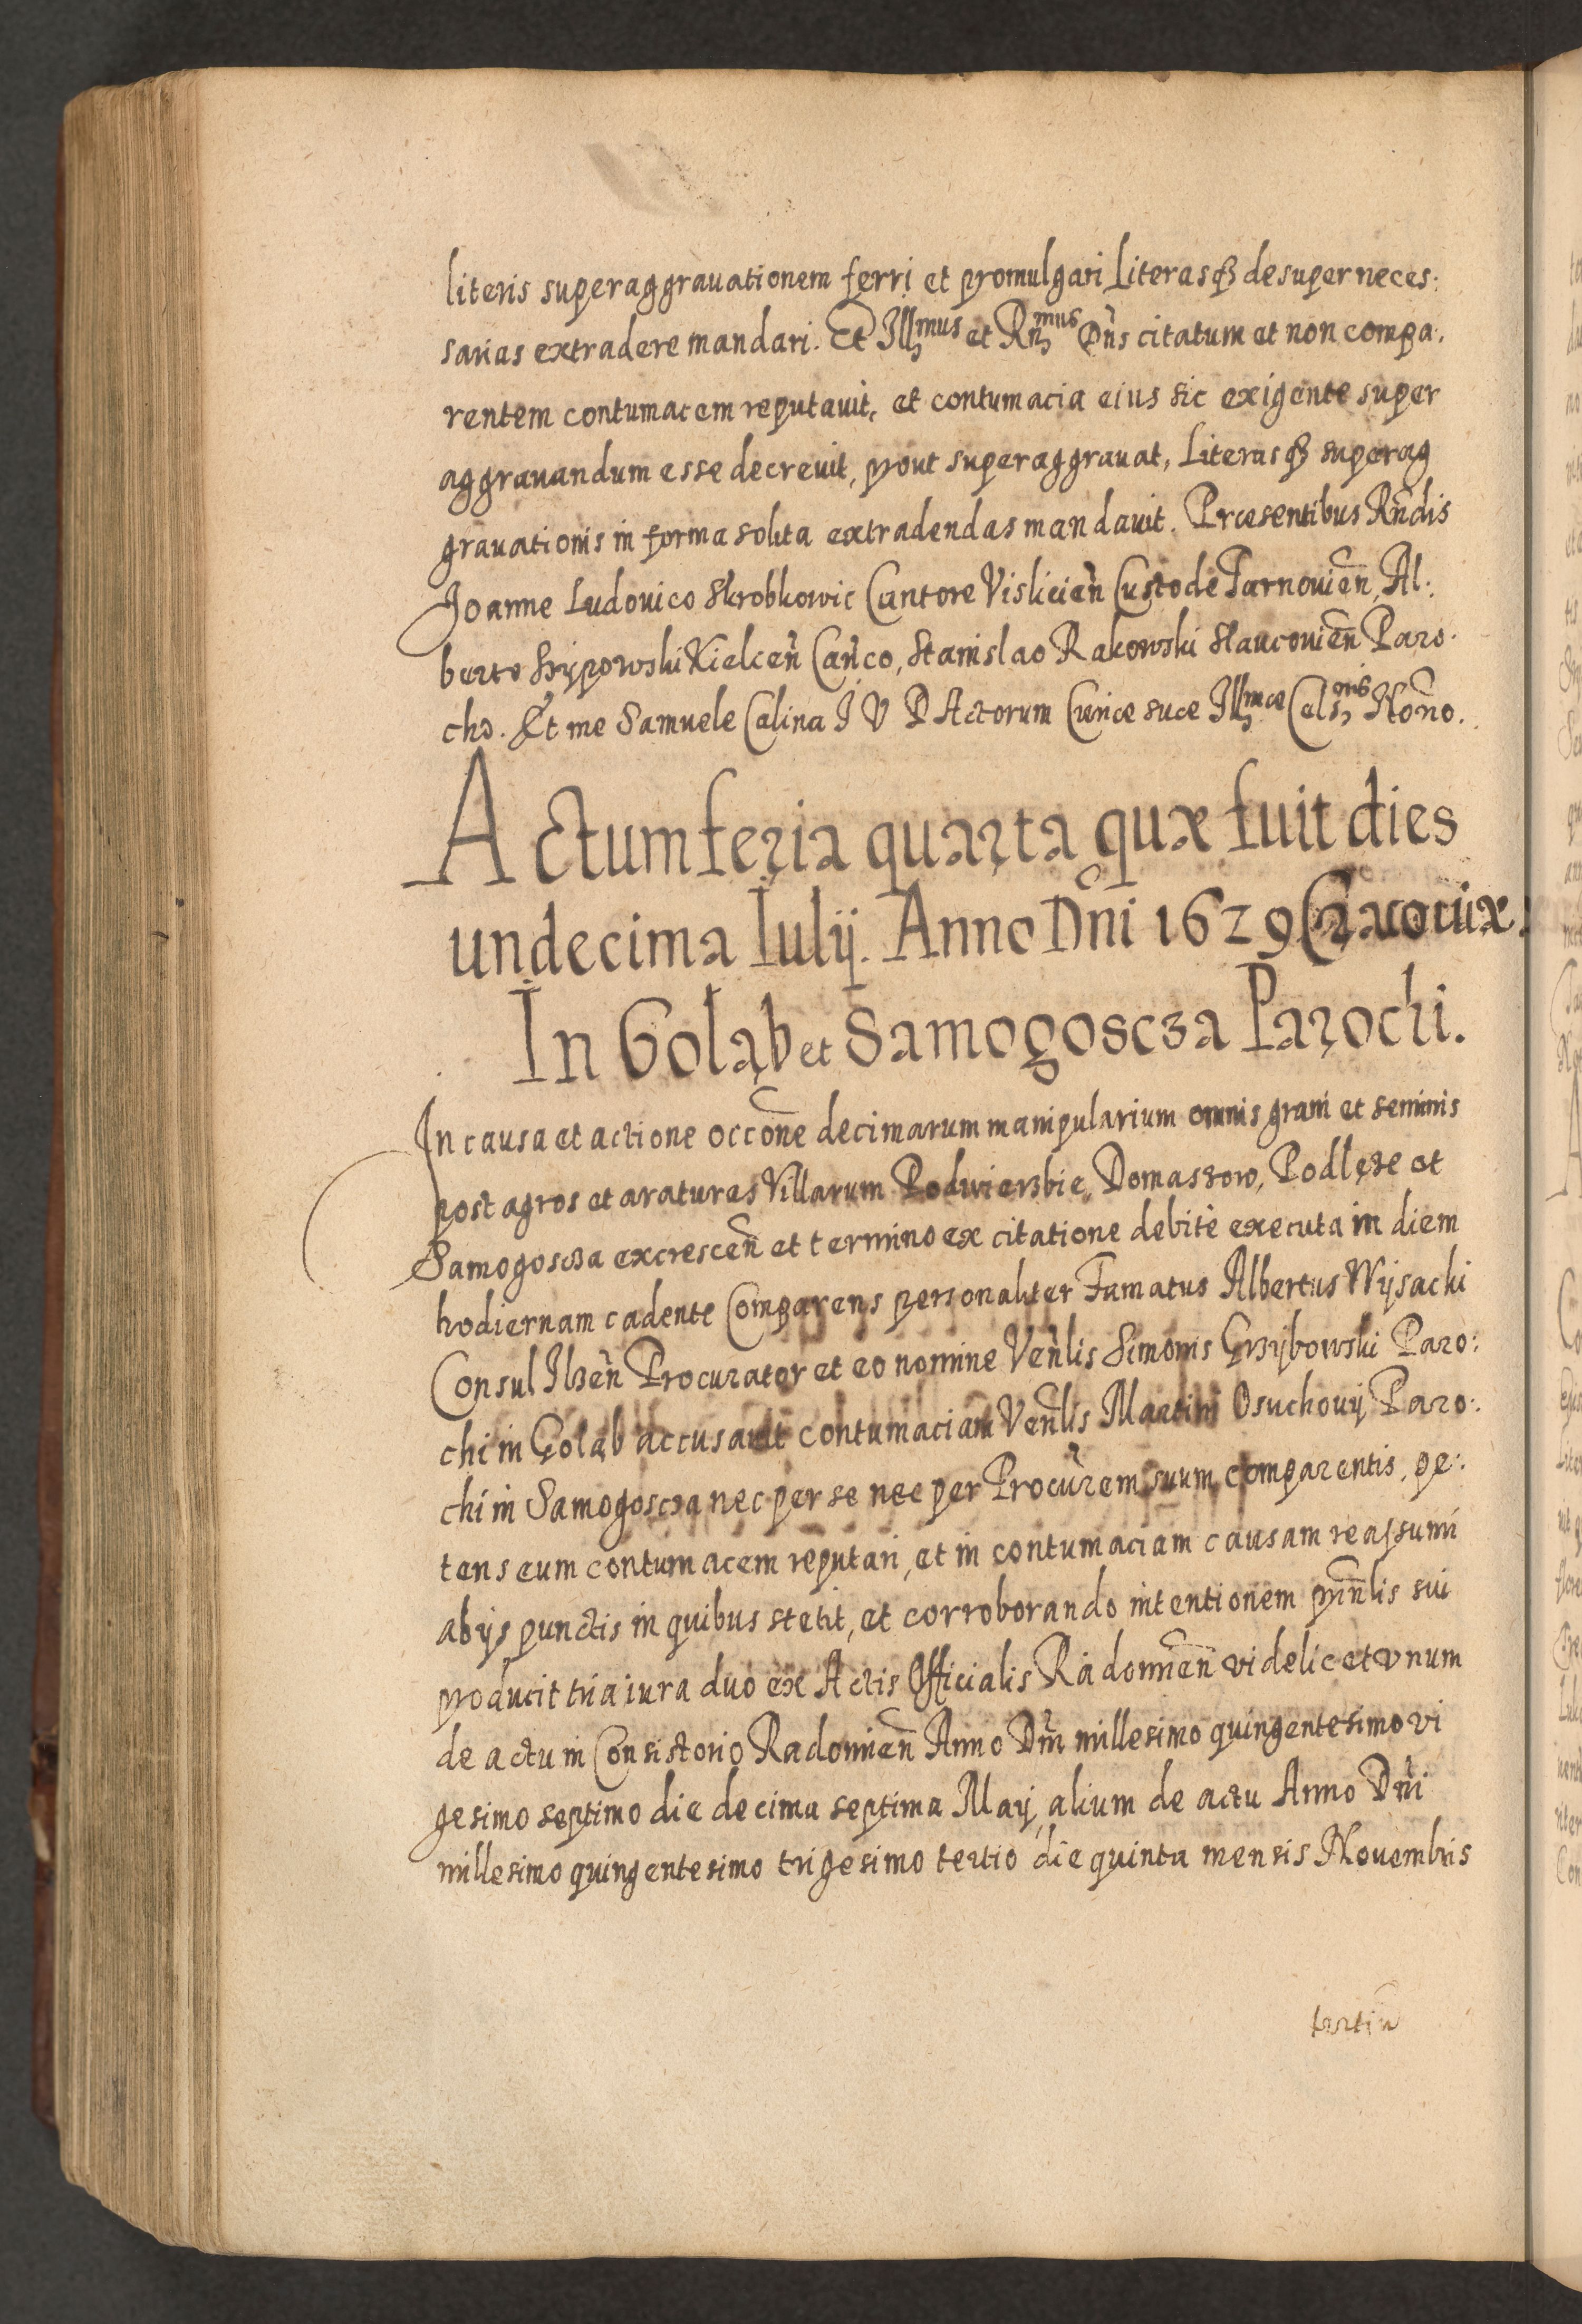 literis superaggrauationem ferri et promulgari Literasq₃ desuper neces:
sarias extradere mandari. Et Ill̃mus et Rñmus Dñs citatum et non compa:
rentem contumacem reputauit, et contumacia eius sic exigente super
aggrauandum esse decreuit, prout superaggrauat, Literasq₃ superag
grauationis in forma solita extradendas mandauit. Præsentibus Rñdis
Joanne Ludouico Skrobkowic Cantore Vislicieñ Custode Tarnouieñ, Al:
berto Lipowski Kielceñ Cañco, Stanislao Rakowski Slaucouieñ Paro
cho. Et me Samuele Calina J V D Actorum Curiæ suæ Ill̃mæ Cels̃nis Noño.
Actum feria quarta quæ fuit dies
undecima Iulij. Anno Dñi 1629 Cracouiæ.
In Goląb et Samogoscza Parochi.
In causa et actione occõne decimarum manipularium omnis grani et seminis
post agros et araturas Villarum Podwierzbie, Domaszow, Podlęże et
Samogoscza excresceñ et termino ex citatione debitè executa in diem
hodiernam cadente Comparens personaliter Famatus Albertus Wysacki
Consul Ilzeñ Procurator et eo nomine Veñlis Simonis Grzybowski Paro:
chi in Goląb accusauit contumaciam Veñlis Martini Osuchouij Paro:
chi in Samogoscza nec per se nec per Procũrem suum comparentis, pe:
tens eum contumacem reputari, et in contumaciam causam reassumi
ab ijs punctis in quibus stetit, et corroborando intentionem priñlis sui
producit tria iura duo ex Actis Officialis Radomieñ videlicet vnum
de actu in Consistorio Radomieñ Anno Dñi millesimo quingentesimo vi
gesimo septimo die decima septima Maij, alium de actu Anno Dñi
millesimo quingentesimo trigesimo tertio die quinta mensis Nouembris
tertiũ